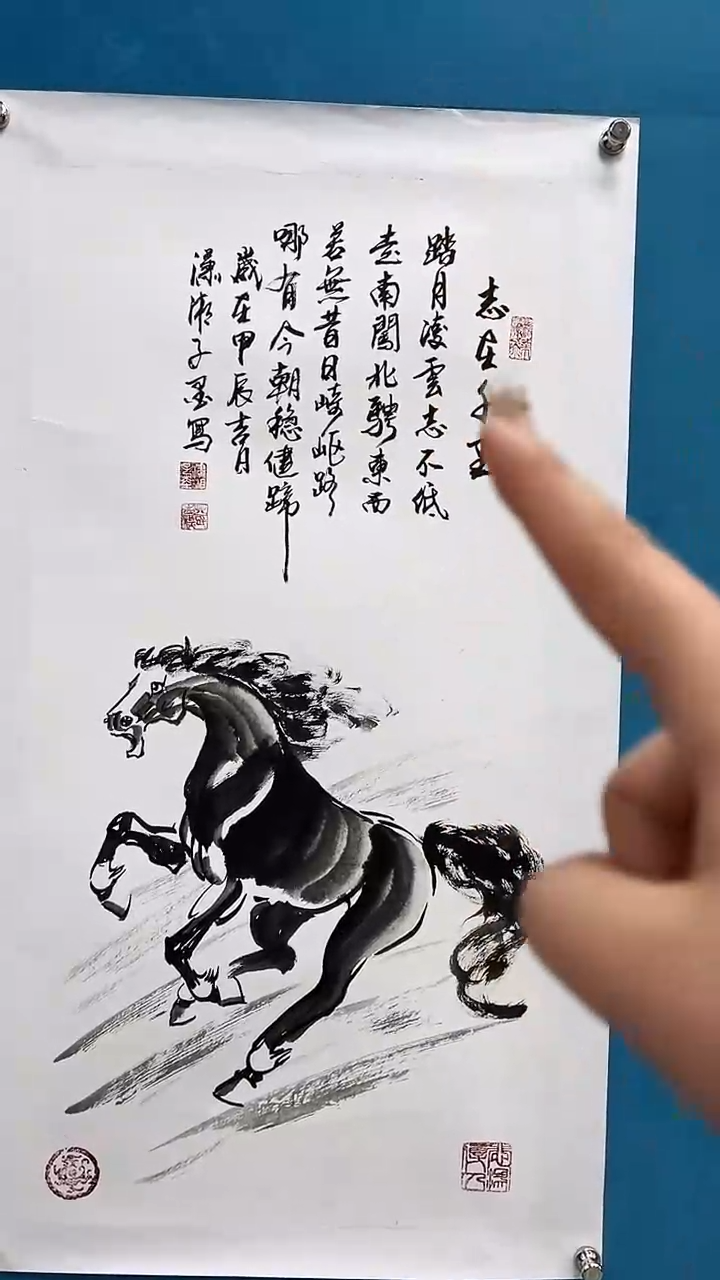 志在千里
踏月凌雲志不低
走南闖北騁東西
若無昔日崎岖路
哪有今朝穩健蹄
歲在甲辰吉月
瀟湘子墨寫